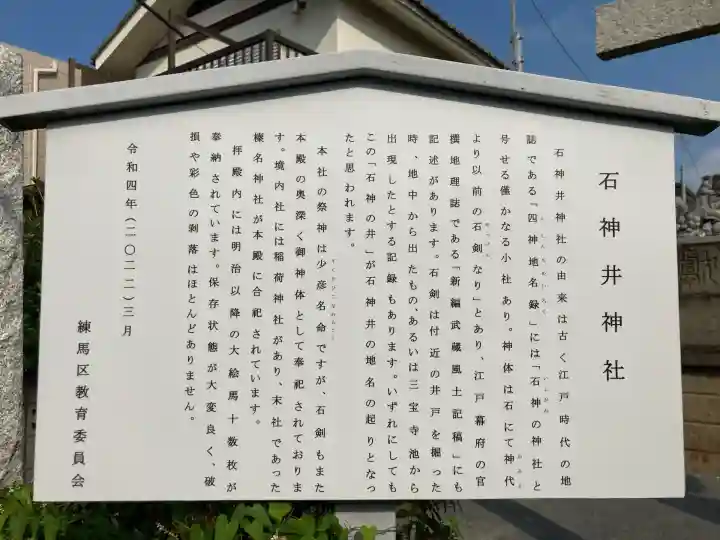 石神井神社
石神井神社の由来は古く江戸時代の地
誌である『四神地名録』には「石神の神社と
号せる僅かなる小社あり。神体は石にて神代
より以前の石剣なり」とあり、江戸幕府の官
撰地理誌である『新編武蔵風土記稿』にも
記述があります。石剣は付近の井戸を掘った
時、地中から出たもの、あるいは三宝寺池から
出現したとする記録もあります。いずれにしても
この「石神の井」が石神井の地名の起りとなっ
たと思われます。
本社の祭神は少彦名命ですが、石剣もまた
本殿の奥深く御神体として奉祀されておりま
す。境内社には稲荷神社があり、末社であった
榛名神社が本殿に合祀されています。
拝殿内には明治以降の大絵馬十数枚が
奉納されています。保存状態が大変良く、破
損や彩色の剥落はほとんどありません。
令和四年(二〇二二)三月
練馬区教育委員会